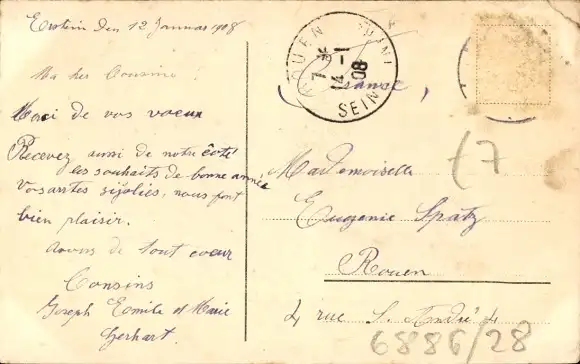 Erstein den 12 Januar 1908
Ma cher Cousine !
Merci de vos voeux
Recevez aussi de notre côté
les souhaits de bonne année
Vos cartes si jolies, nous font
bien plaisir.
de tout coeur
Cousins
Joseph Emile et Marie
Gerhart.
ROUEN
7
14 - 1
08
SEINE
France,
Mademoiselle
Eugenie Spatz
Rouen
4 rue S. André
(7
6886/28